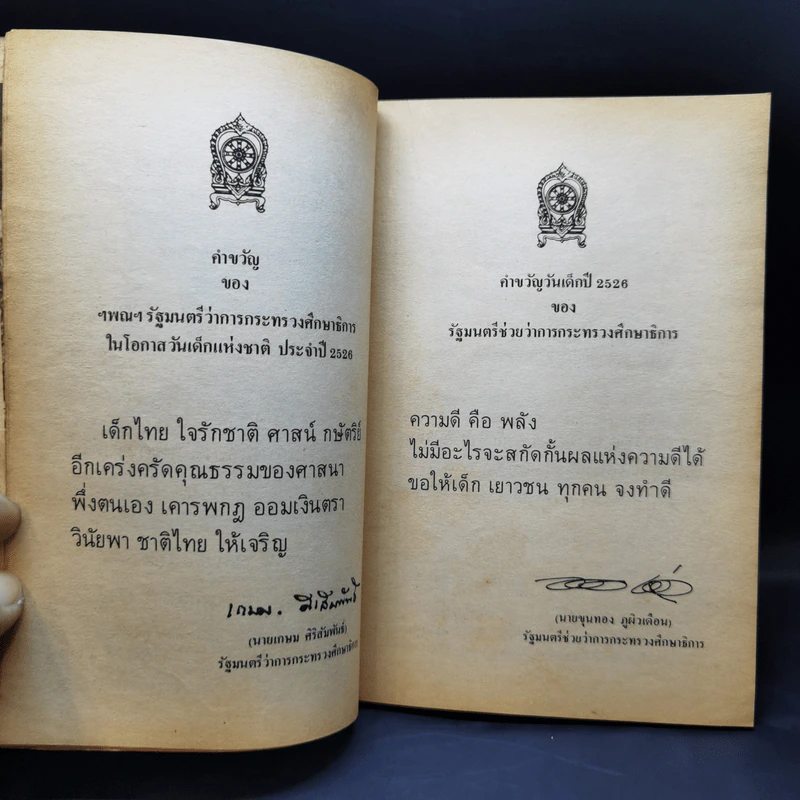 คำขวัญ
ของ
ฯพณฯ รัฐมนตรีว่าการกระทรวงศึกษาธิการ
ในโอกาสวันเด็กแห่งชาติ ประจำปี 2526
เด็กไทย ใจรักชาติ ศาสน์ กษัตริย์
อีกเคร่งครัดคุณธรรมของศาสนา
พึ่งตนเอง เคารพกฎ ออมเงินตรา
วินัยพา ชาติไทย ให้เจริญ
เกษม ศิริสัมพันธ์
(นายเกษม ศิริสัมพันธ์)
รัฐมนตรีว่าการกระทรวงศึกษาธิการ
คำขวัญวันเด็กปี 2526
ของ
รัฐมนตรีช่วยว่าการกระทรวงศึกษาธิการ
ความดี คือ พลัง
ไม่มีอะไรจะสกัดกั้นผลแห่งความดีได้
ขอให้เด็ก เยาวชน ทุกคน จงทำดี
(นายขุนทอง ภูผิวเดือน)
รัฐมนตรีช่วยว่าการกระทรวงศึกษาธิการ